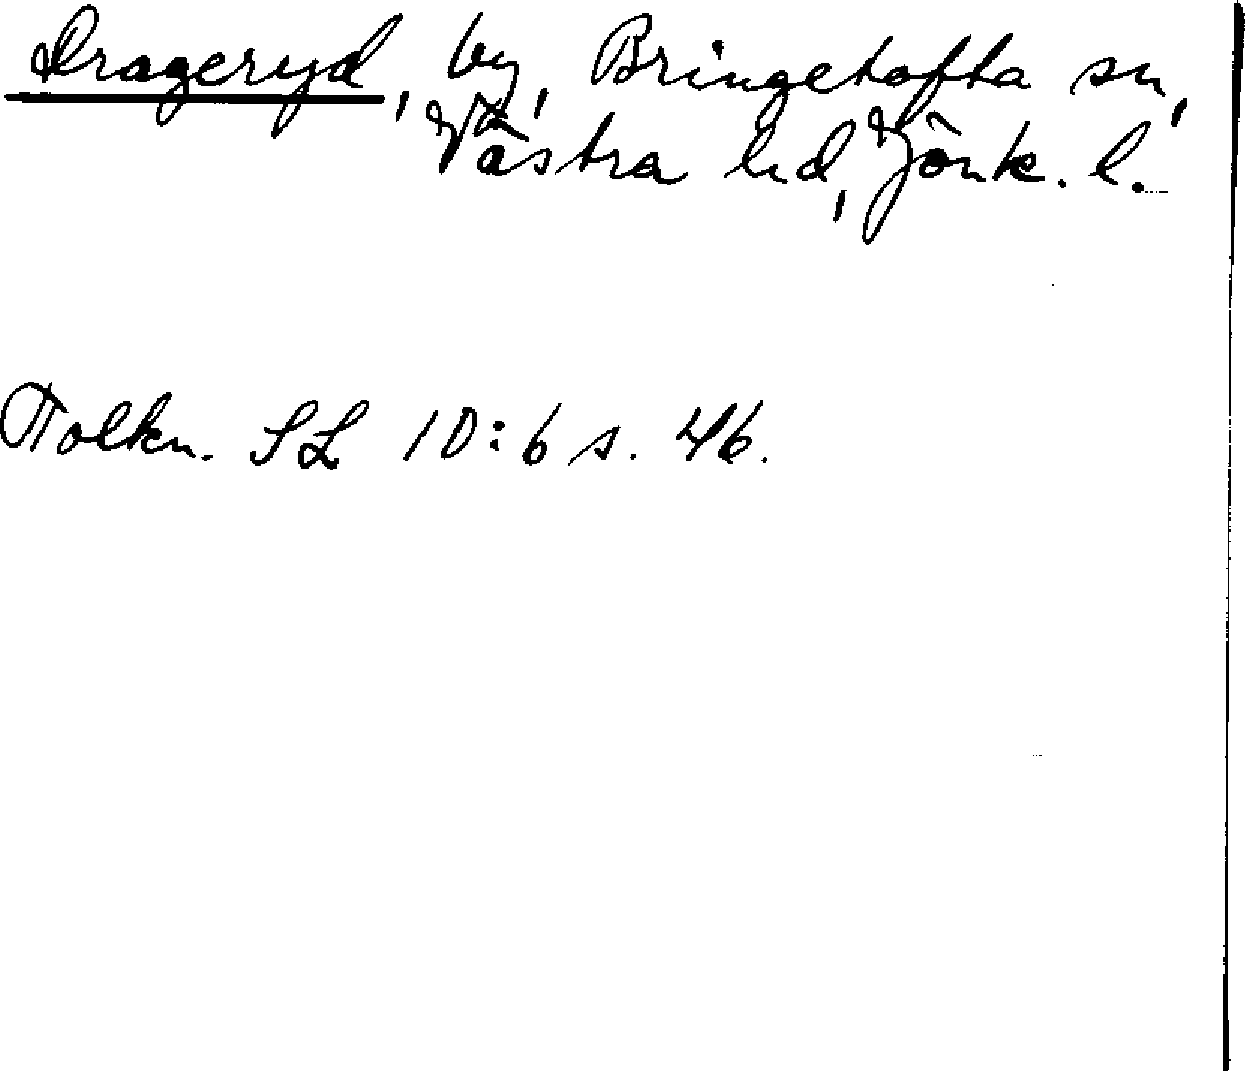 Drageryd, by, Bringetofta sn,
Västra hd, Jönk. l.
Tolkn. SL 10:6 s. 46.